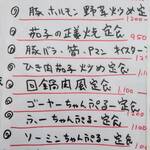 豚ホルモン野菜炒め定食
1200
茄子の正美焼定食
950
豚バラ・ピーマン オイスター
ひき肉茄子炒め定食
1100
回鍋肉風定食
1,100
ゴーヤーちゃんぷるー定食
ふーちゃんぷるー定食
ソーミンちゃんぷるー定食